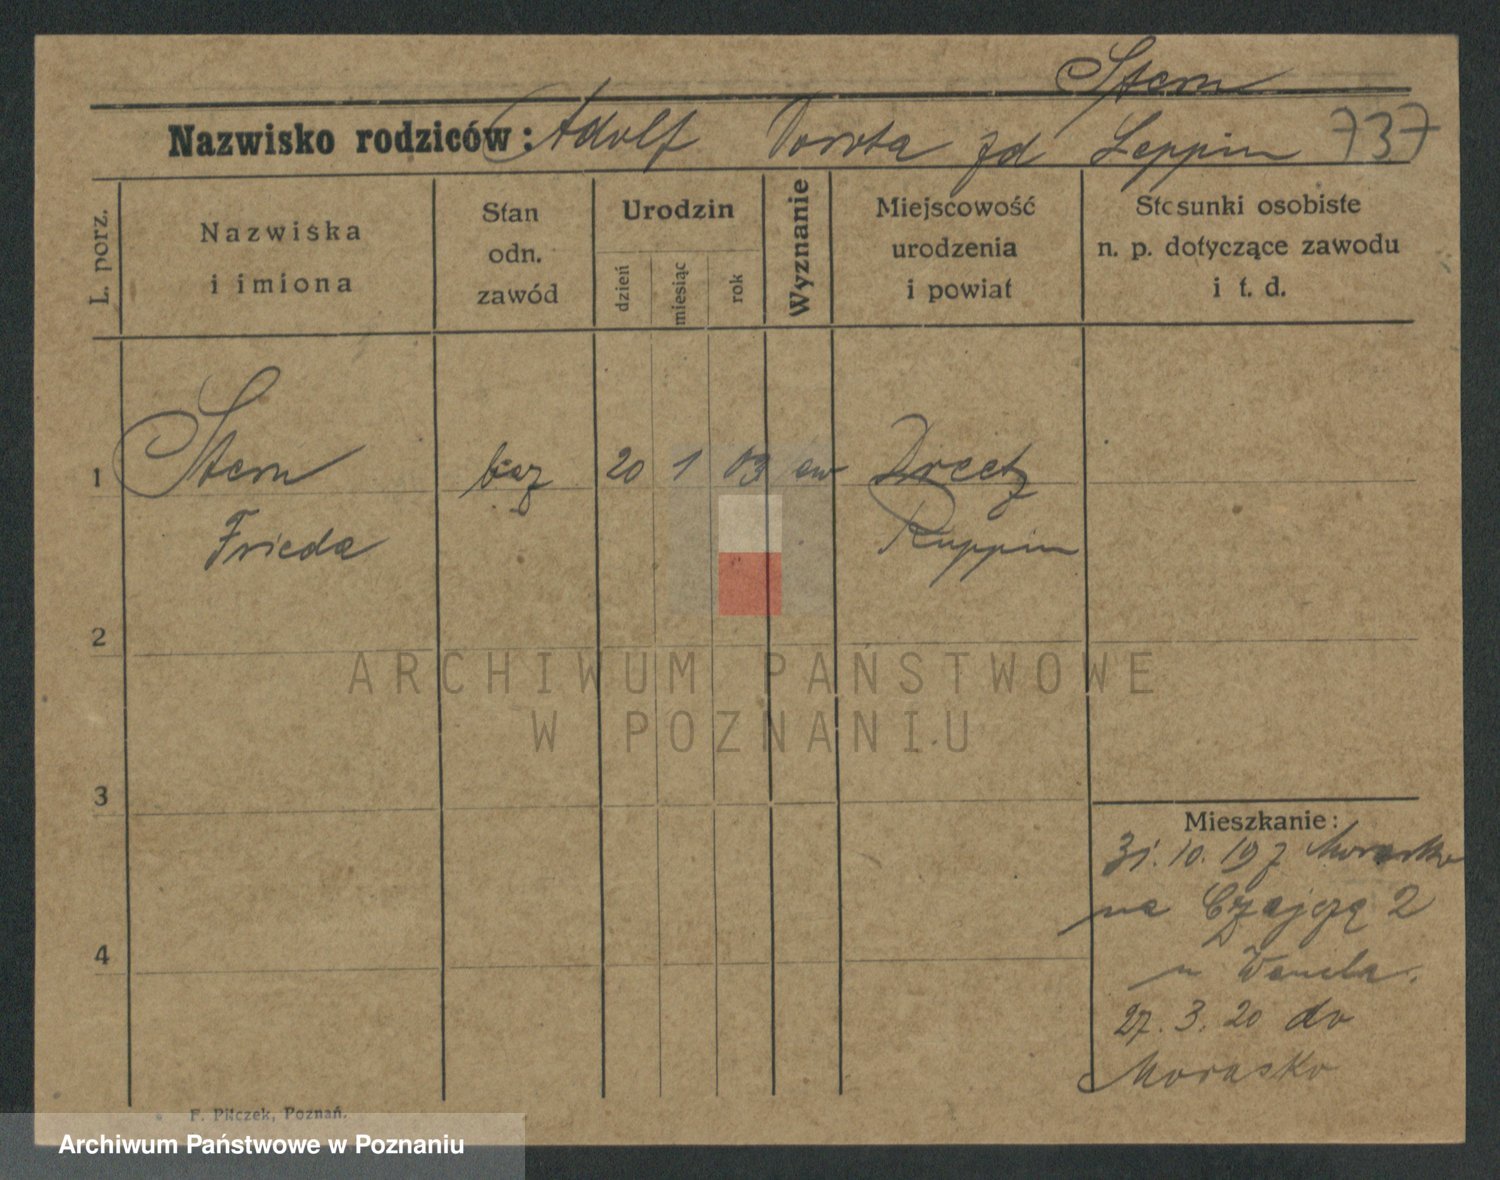 Stern
Nazwisko rodziców: Adolf Dorota zd Leppin 737
L. porz.
Nazwiska
i imiona
Stan
odn.
zawód
Urodzin
dzień
miesiąc
rok
Wyznanie
Miejscowość
urodzenia
i powiat
Stosunki osobiste
n. p. dotyczące zawodu
i t. d.
1 Stern 20 1 03 ew Dreetz
Frieda Ruppin
2
ARCHIWUM PAŃSTWOWE
W POZNANIU
3
Mieszkanie:
31. 10. 19 z Moraska
na 2
4
27. 3. 20 do
Morasko
F. Pilczek, Poznań.
Archiwum Państwowe w Poznaniu